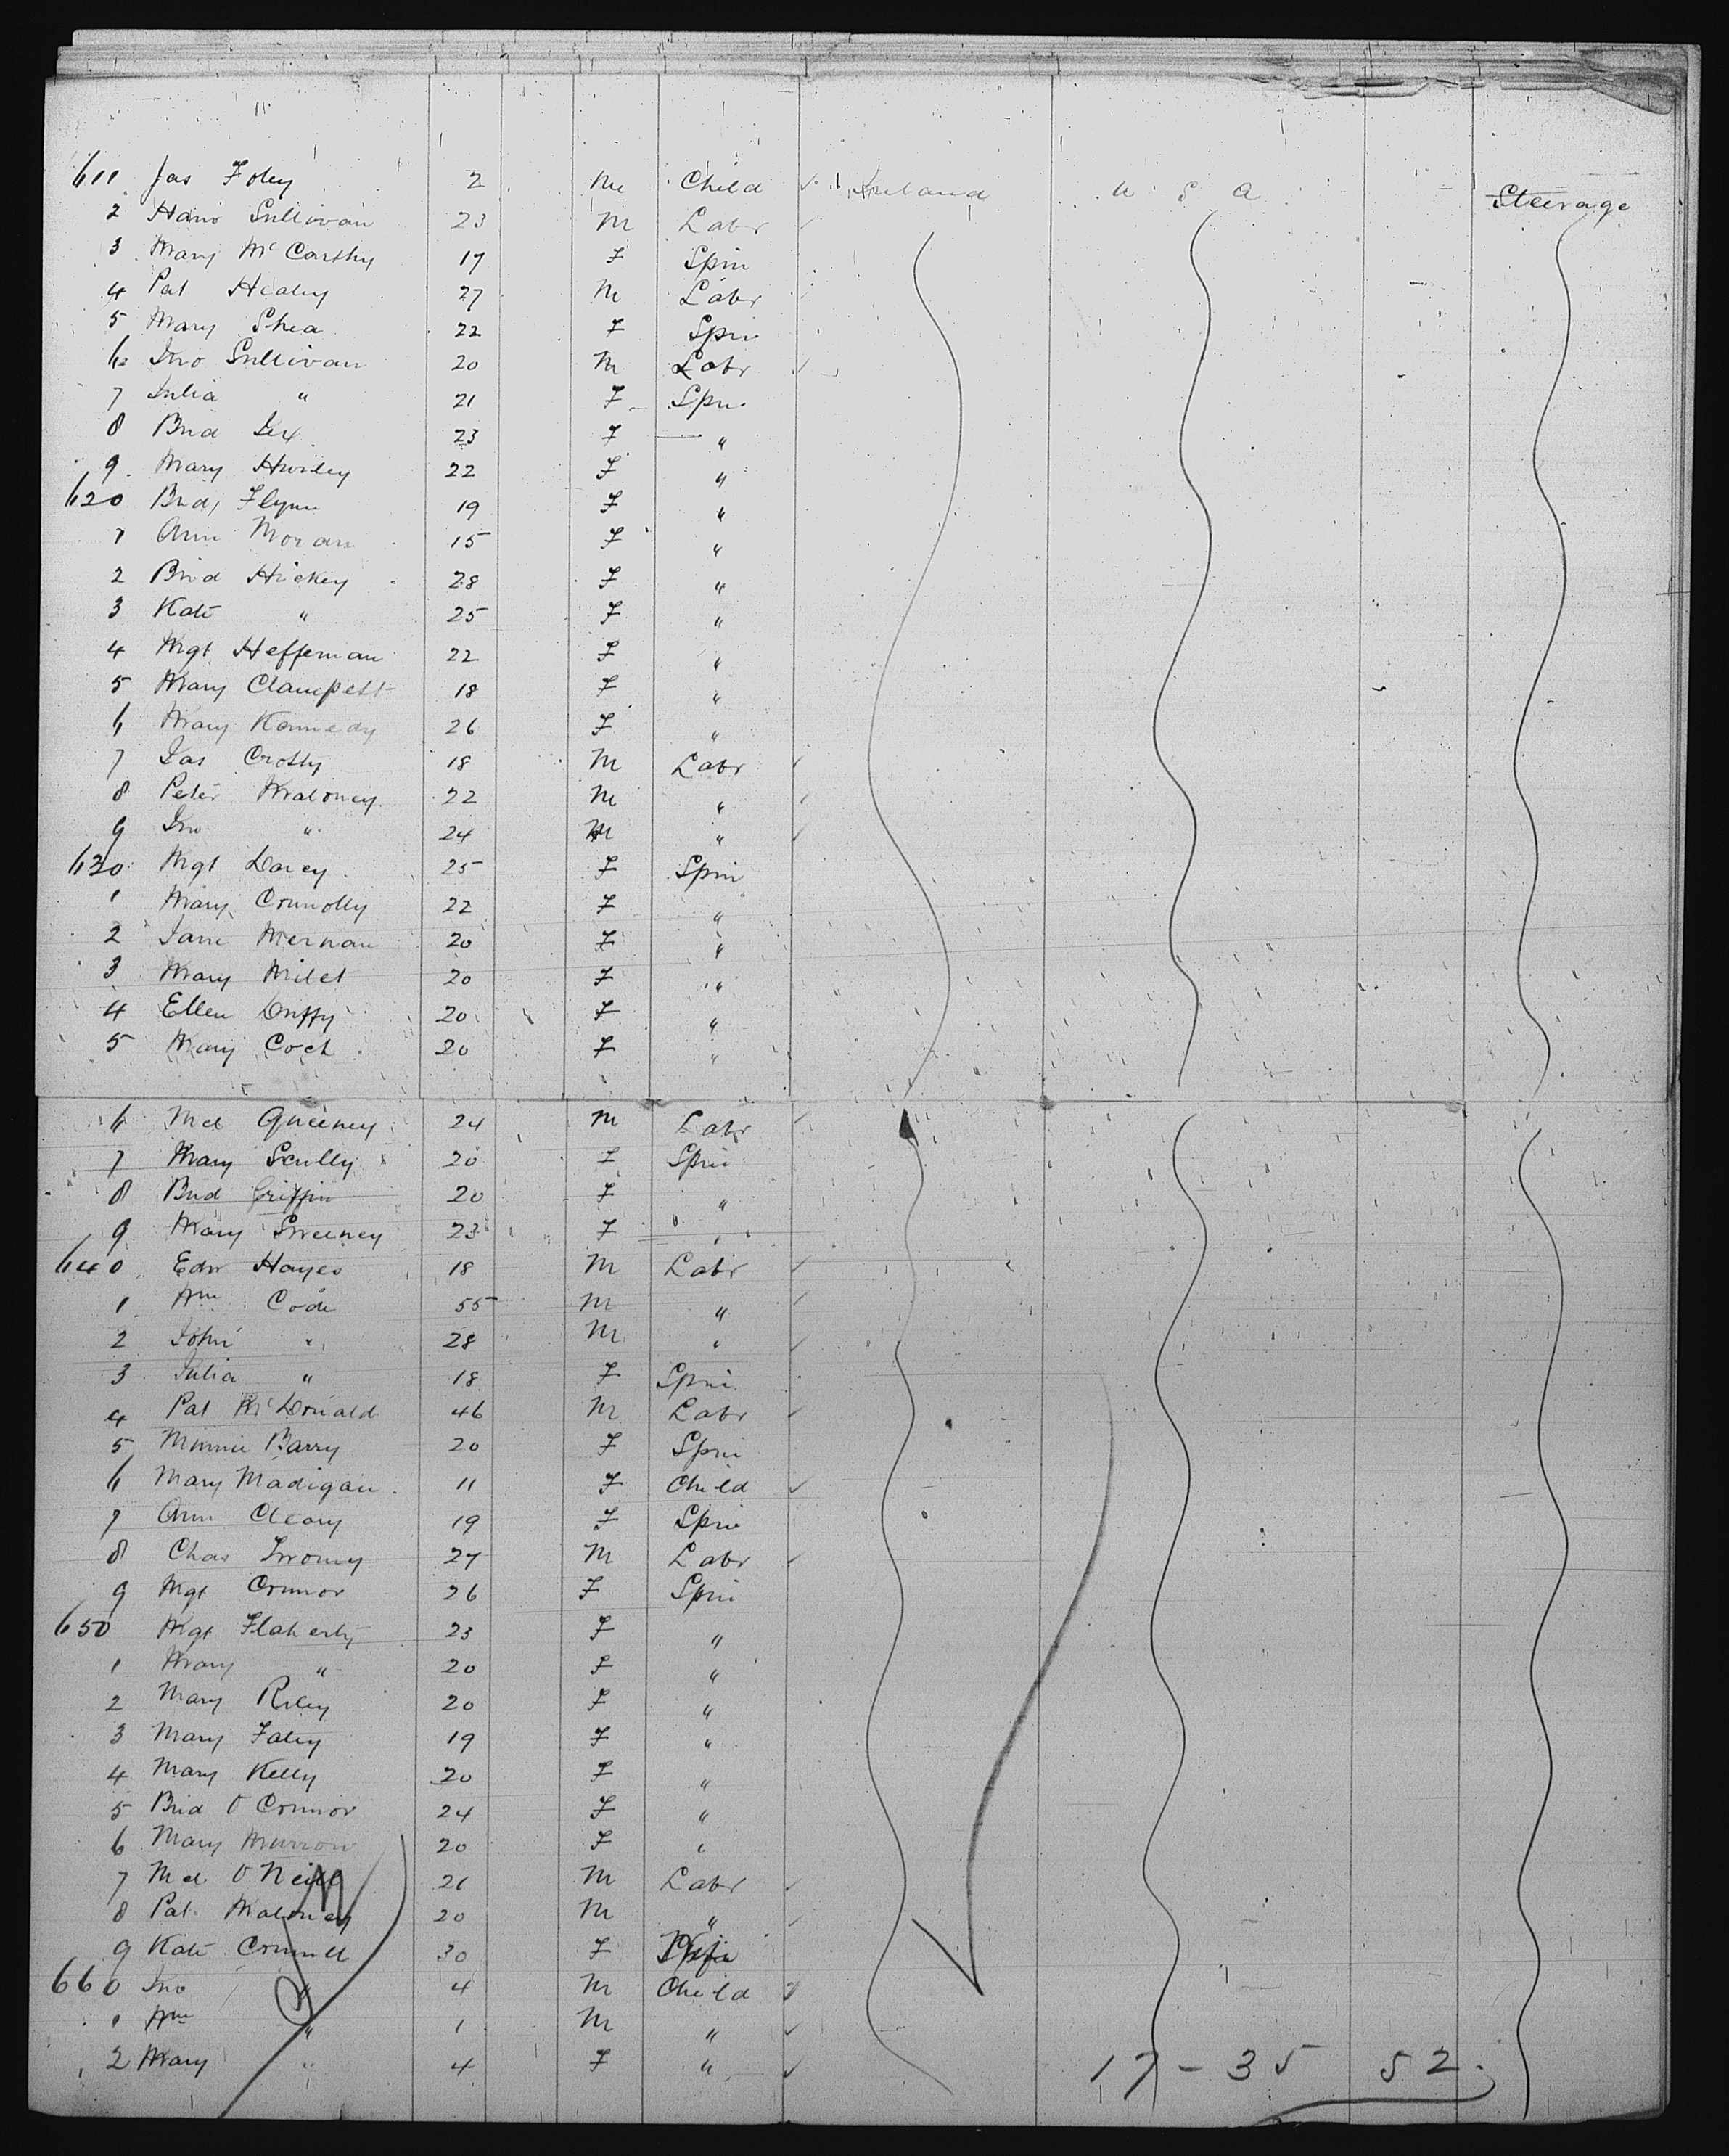 611 Jas Foley 2 M Child Ireland U S A Steerage
2 Hano Sullivan 23 M Labr
3 Mary McCarthy 17 F Spin
4 Pat Healy 27 M Labr
5 Mary Shea 22 F Spin
6 Jno Sullivan 20 M Labr
7 Julia " 21 F Spin
8 Brid 23 F "
9 Mary Hurley 22 F "
620 Brid Flynn 19 F "
1 Ann Moran 15 F "
2 Brid Hickey 28 F "
3 Kate " 25 F "
4 Mgt Heffernan 22 F "
5 Mary Clampett 18 F "
6 Mary Kennedy 26 F "
7 Jas Crotty 18 M Labr
8 Peter Maloney 22 M "
9 Jno " 24 M "
630 Mgt Darcy 25 F Spin
1 Mary Connolly 22 F "
2 Jane Mernan 20 F "
3 Mary Milet 20 F "
4 Ellen Duffy 20 F "
5 Mary 20 F "
6 Ml Queeney 24 M Labr
7 Mary Scully 20 F Spin
8 Brid Griffin 20 F "
9 Mary Sweeney 23 F "
640 Edw Hayes 18 M Labr
1 Wm Code 55 M "
2 John " 28 M "
3 Julia " 18 F Spin
4 Pat McDonald 46 M Labr
5 Minnie Barry 20 F Spin
6 Mary Madigan 11 F Child
7 Ann Cleary 19 F Spin
8 Chas 27 M Labr
9 Mgt Connor 26 F Spin
650 Mgt Flaherty 23 F "
1 Mary " 20 F "
2 Mary Riley 20 F "
3 Mary Fahy 19 F "
4 Mary Kelly 20 F "
5 Brid O Connor 24 F "
6 Mary Murrow 20 F "
7 Ml O Neill 21 M Labr
8 Pat Maloney 20 M "
9 Kate Connell 30 F Wife
660 Jno " 4 M Child
1 Wm " 1 M "
2 Mary " 4 F "
17 - 35 52